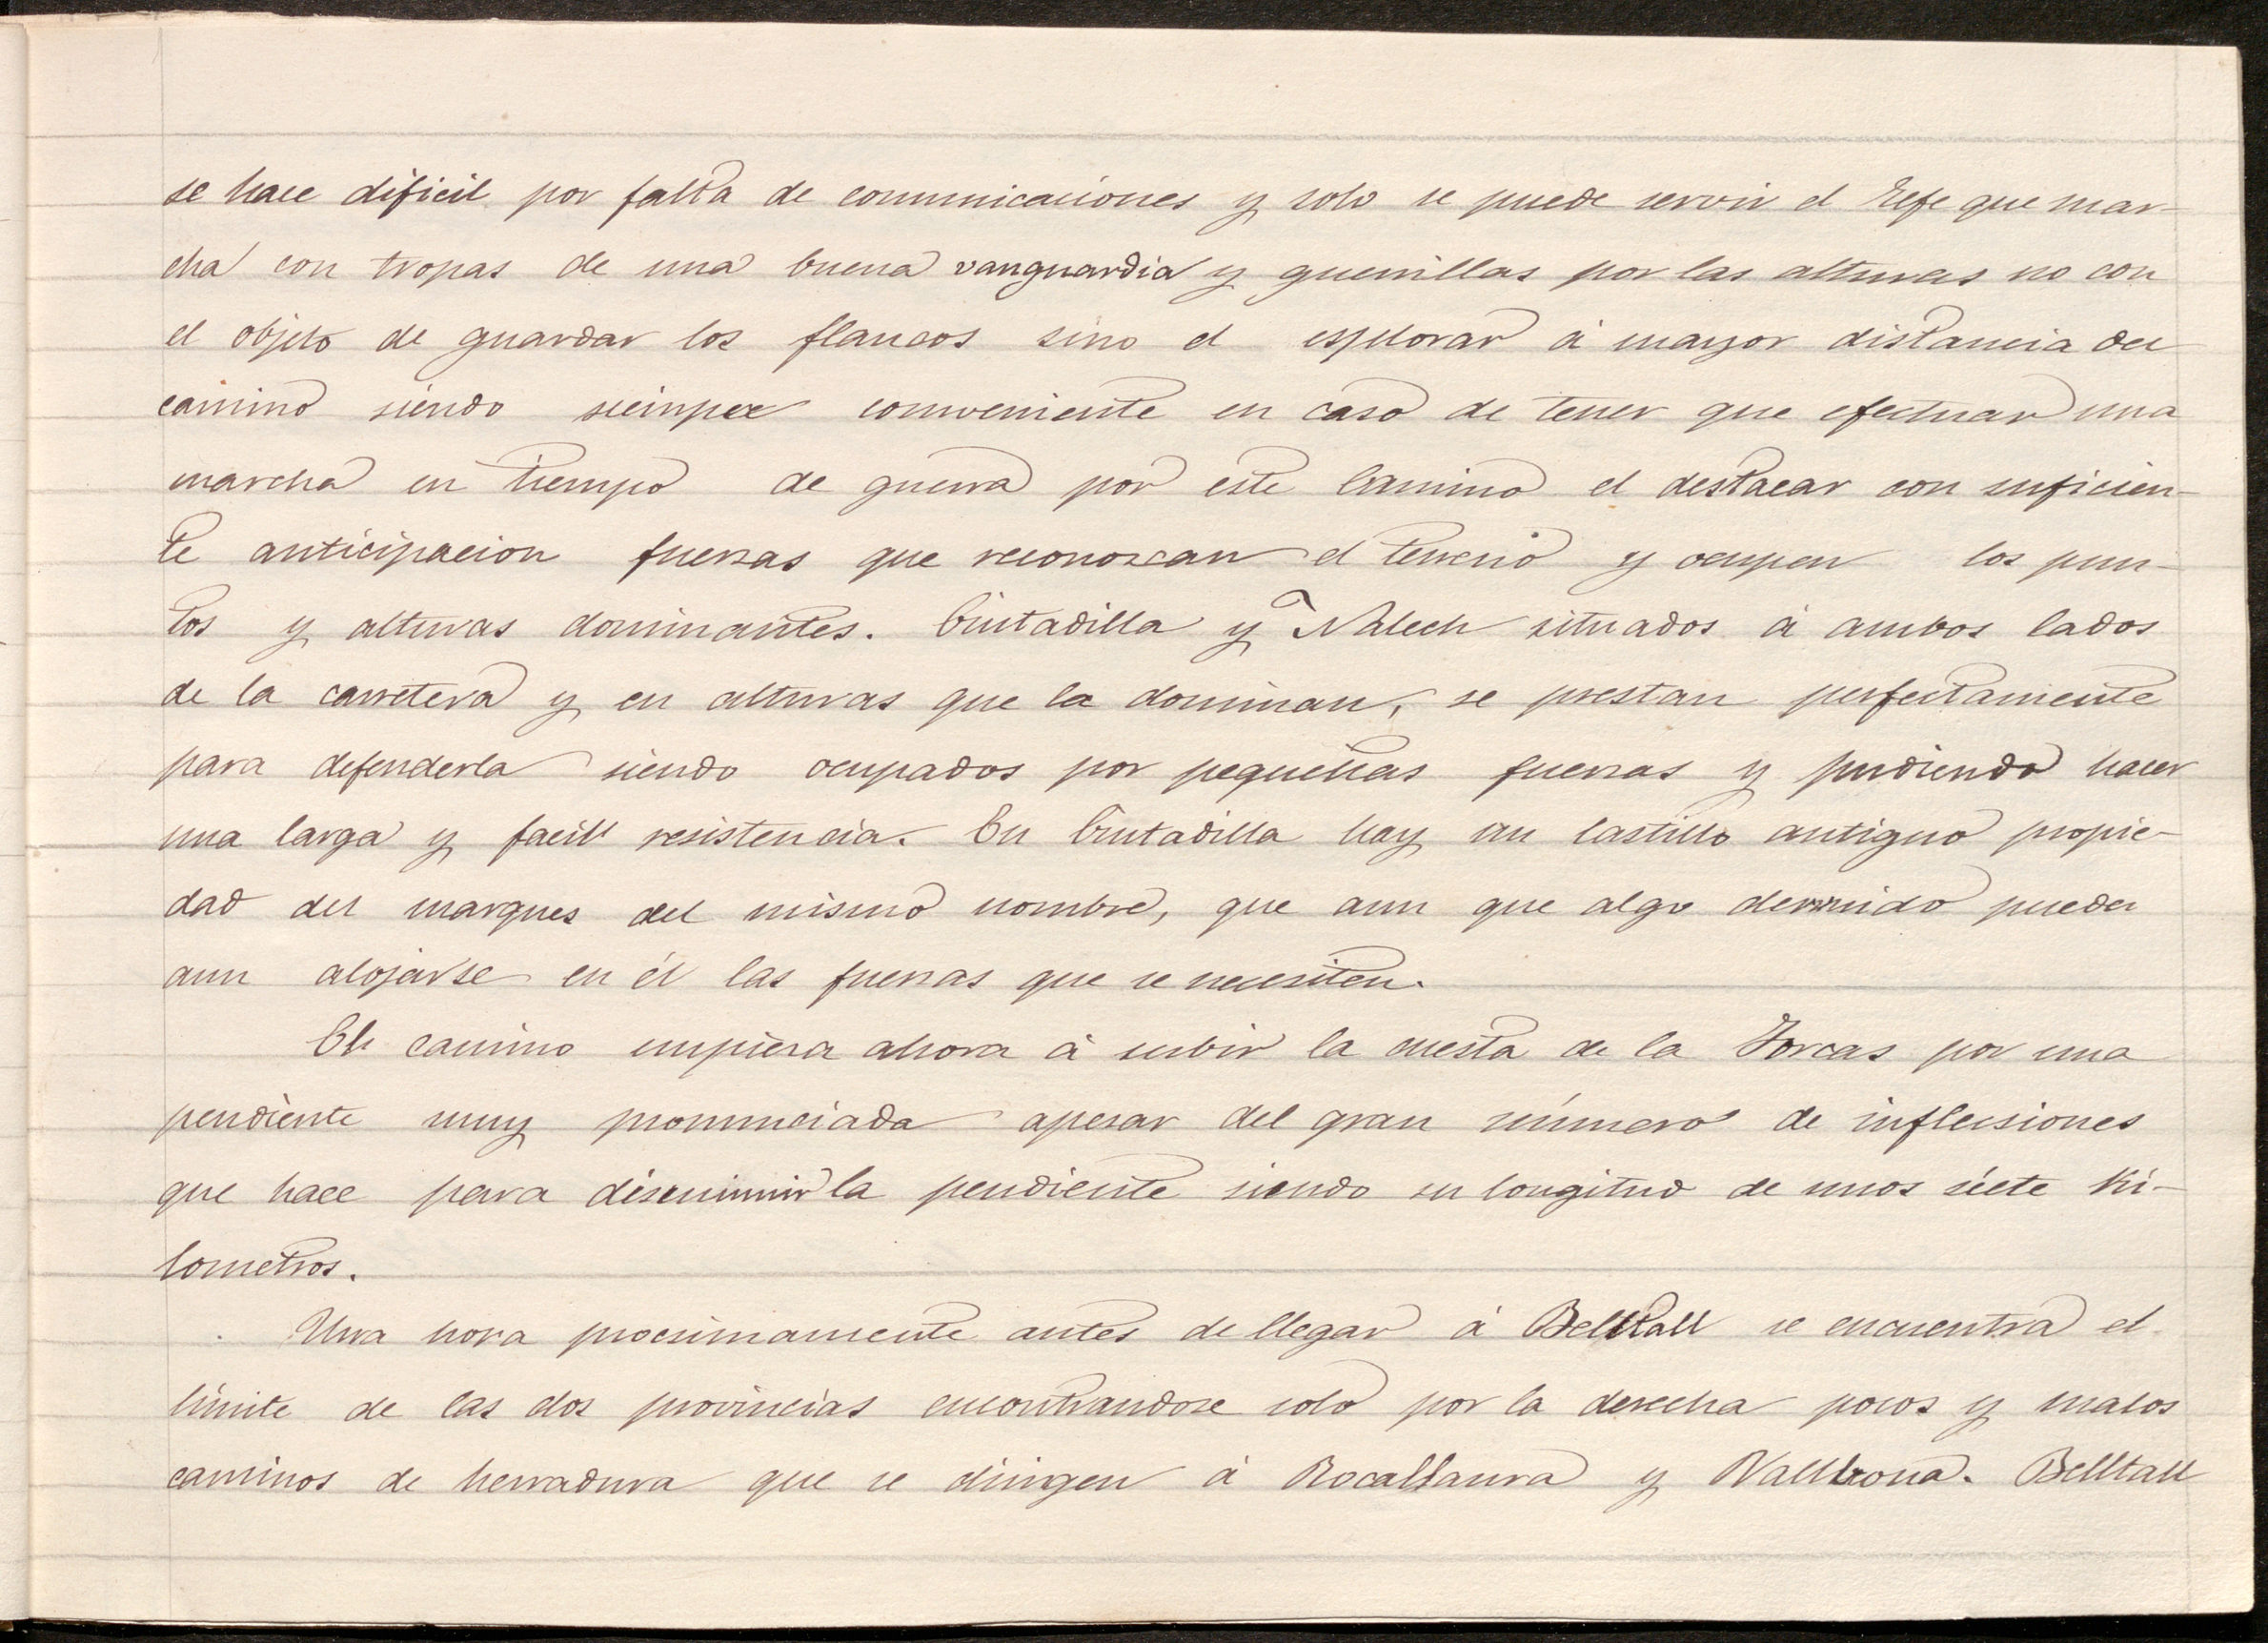 se hace dificil por falta de comunicaciones y solo se puede servir el Gefe que mar-
cha con tropas de una buena vanguardia y guerrillas por las alturas no con
el objeto de guardar los flancos sino el esplorar á mayor distancia del
camino siendo siempre conveniente en caso de tener que efectuar una
marcha en tiempo de guerra por este camino el destacar con suficien-
te anticipacion fuerzas que reconozcan el terreno y ocupen los pun-
tos y alturas dominantes. Ciutadilla y Nalech situados á ambos lados
de la carretera y en alturas que la dominan, se prestan perfectamente
para defenderla siendo ocupados por pequeñas fuerzas y pudiendo hacer
una larga y facil resistencia. En Ciutadilla hay un castillo antiguo propie-
dad del marques del mismo nombre, que aun que algo derruido pueden
aun alojarse en él las fuerzas que se necesiten.
El camino empieza ahora á subir la cuesta de la Forcas por una
pendiente muy pronunciada apesar del gran número de inflecsiones
que hace para disminuir la pendiente siendo su longitud de unos siete Ki-
lometros.
Una hora procsimamente antes de llegar á Belltall se encuentra el
límite de las dos provincias encontrandose solo por la derecha pocos y malos
caminos de herradura que se dirigen á Rocallaura y Vallbona. Belltall